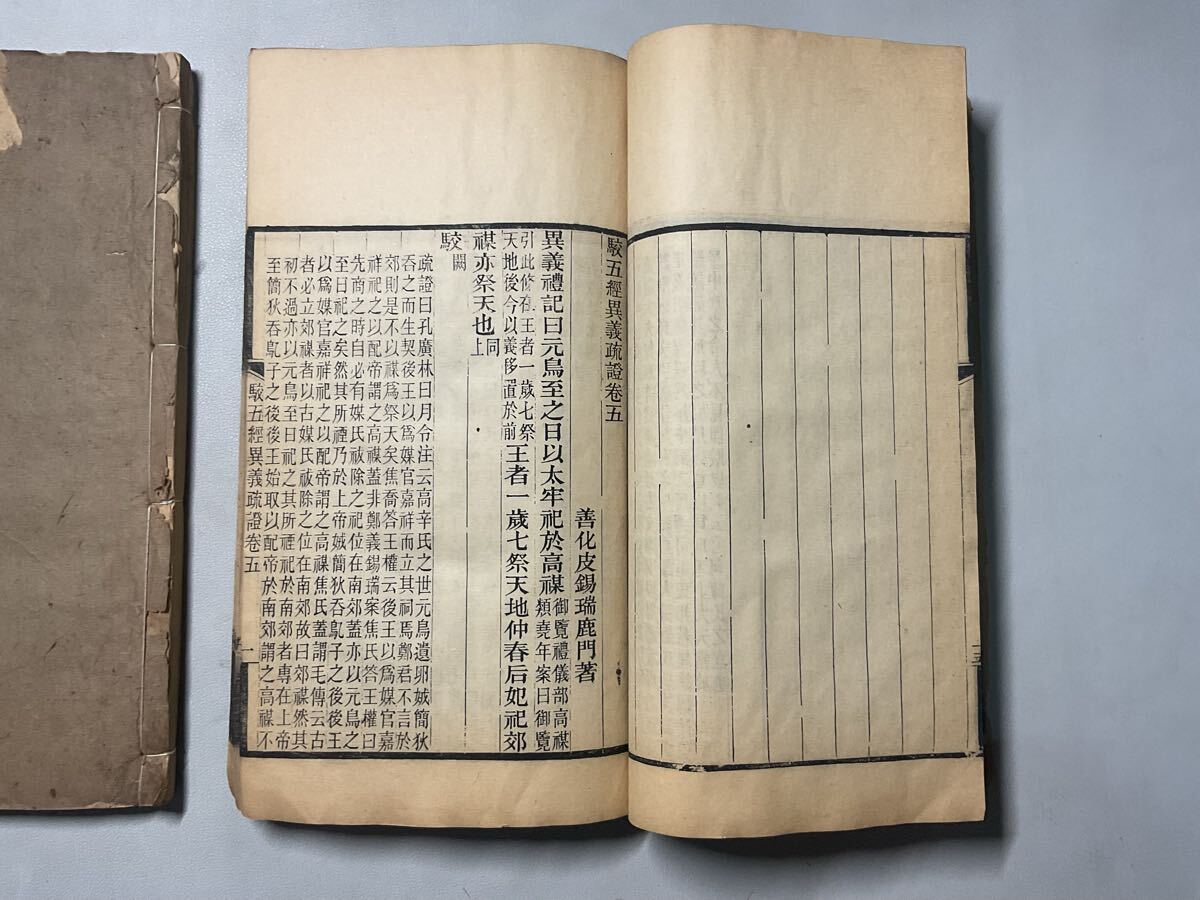 駮五經異義疏證卷五
善化皮錫瑞鹿門著
異義禮記曰元鳥至之日以太牢祀於高禖
御覽禮儀部高禖
類堯年案曰御覽
引此條在王者一歲七祭
天地後今以義移置於前
王者一歲七祭天地仲春后妃祀郊
禖亦祭天也
同
上
駮闕
疏證曰孔廣林曰月令注云高辛氏之世元鳥遺卵娀簡狄
吞之而生契後王以爲媒官嘉祥而立其祠焉鄭君不言於
郊則是不以禖爲祭天矣焦喬答王權云後王以爲媒官嘉
祥祀之以配帝謂之高禖蓋非鄭義錫瑞案焦氏答王權曰
先商之時自必有媒氏祓除之祀位在南郊蓋亦以元鳥之
至日祀之矣然其所禋乃於上帝娀簡狄吞鳦子之後後王
以爲媒官嘉祥祀之以配帝謂之高禖焦氏蓋謂毛傳云古
者必立郊禖者以古媒氏祓除之位在南郊故曰郊禖然其
初不過亦以元鳥至日祀之其所禋祀於南郊者專在上帝
至簡狄吞鳦子之後後王始取以配帝於南郊謂之高禖不
駮五經異義疏證卷五
一